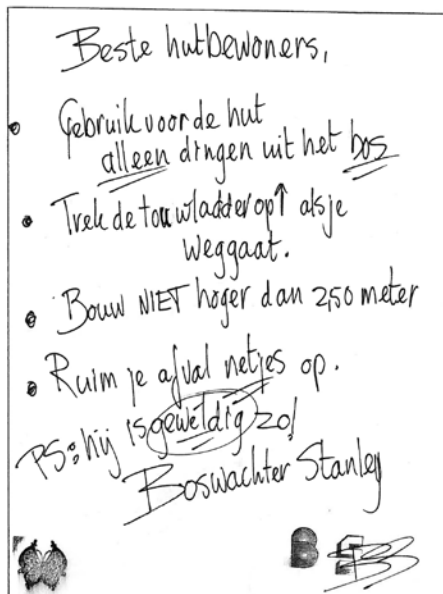 Beste hutbewoners,
• Gebruik voor de hut
alleen dingen uit het bos
• Trek de touwladder op↑ als je
weggaat.
• Bouw NIET hoger dan 2,50 meter
• Ruim je afval netjes op.
PS: hij is geweldig zo!
Boswachter Stanley
B S